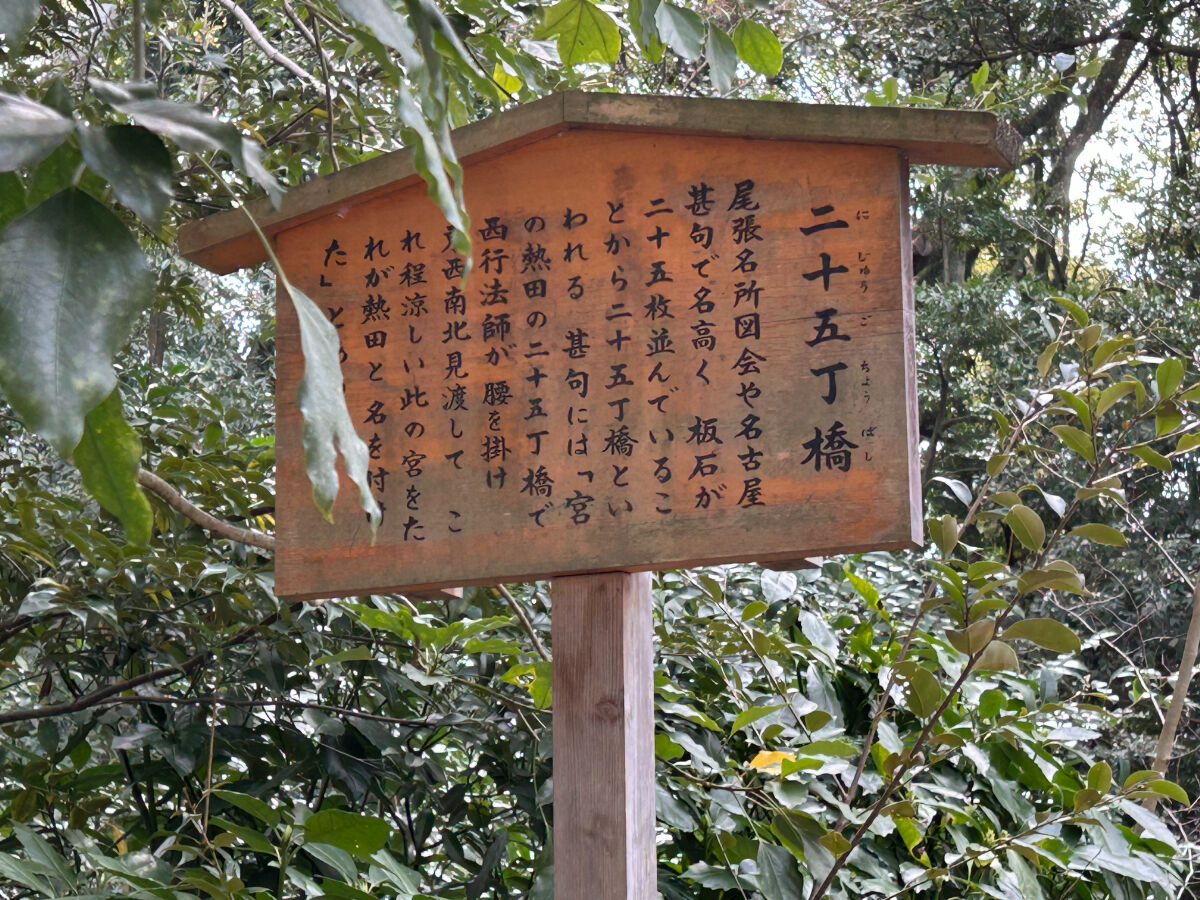 二十五丁橋
に じゅう ご ちよう ばし
尾張名所図会や名古屋
甚句で名高く 板石が
二十五枚並んでいるこ
とから二十五丁橋とい
われる 甚句には「宮
の熱田の二十五丁橋で
西行法師が 腰を掛け
西南北見渡して こ
れ程涼しい此の宮をた
れが熱田と名を付け
た」と